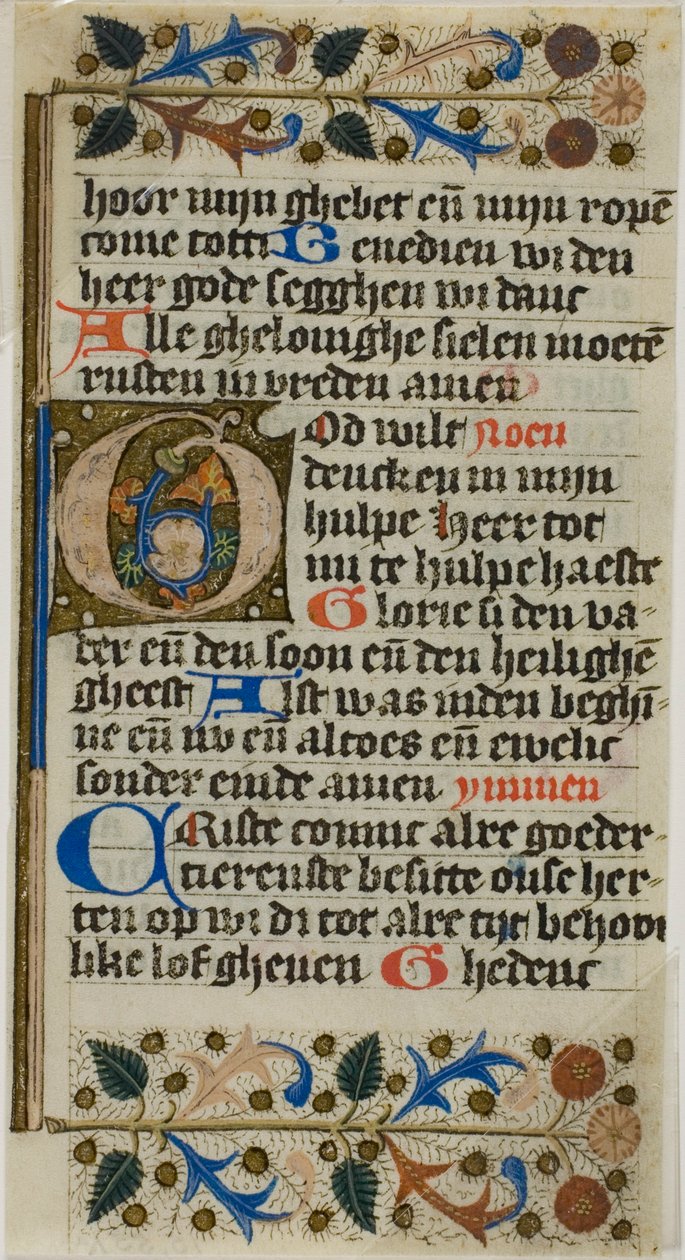 hoor mijn ghebet eñ mijn ropē
come totti Benedien wi den
heer gode segghen wi danc
Alle ghelouighe sielen moetē
rusten in vreden amen
God wilt Noen
dencken in mijn
hulpe Heer tot
mi te hulpe haeste
Glorie si den va-
der eñ den soon eñ den heilighē
gheest Alst was inden beghī-
ne eñ nv eñ altoes eñ ewelic
sonder einde amen ymmen
CRiste comme alre goeder-
tierenste besitte onse her-
ten op wi di tot alre tijt behoor
like lof gheuen Ghedenc